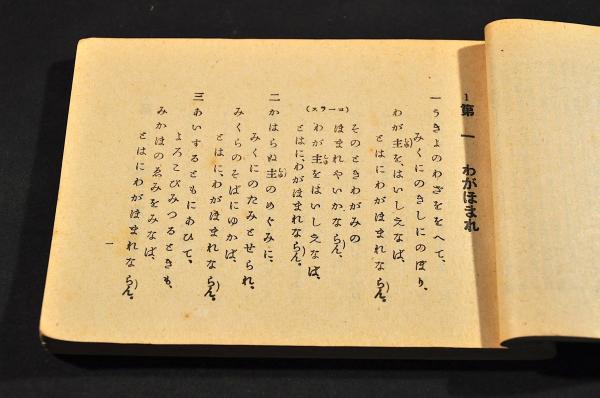 1
第一 わがほまれ
一 うきよのわざををへて、
みくにのきしにのぼり、
わが主を、はいしえなば、
とはにわがほまれならん。
(コーラス)
そのときわがみの
ほまれやいかならん、
わが主をはいしえなば、
とはに、わがほまれならん。
二 かはらぬ主のめぐみに、
みくにのたみとせられ、
みくらのそばにゆかば、
とはに、わがほまれならん。
三 あいするともにあひて、
よろこびみつるときも、
みかほのゑみをみなば、
とはにわがほまれならん。
一